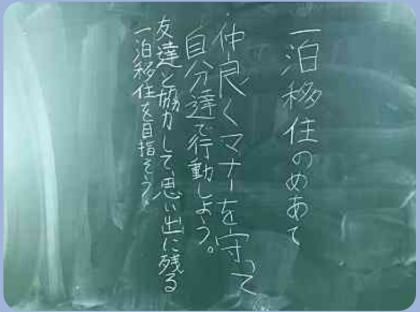 一泊移住のめあて
仲良くマナーを守って
自分達で行動しよう。
友達と協力して、思い出に残る
一泊移住を目指そう。